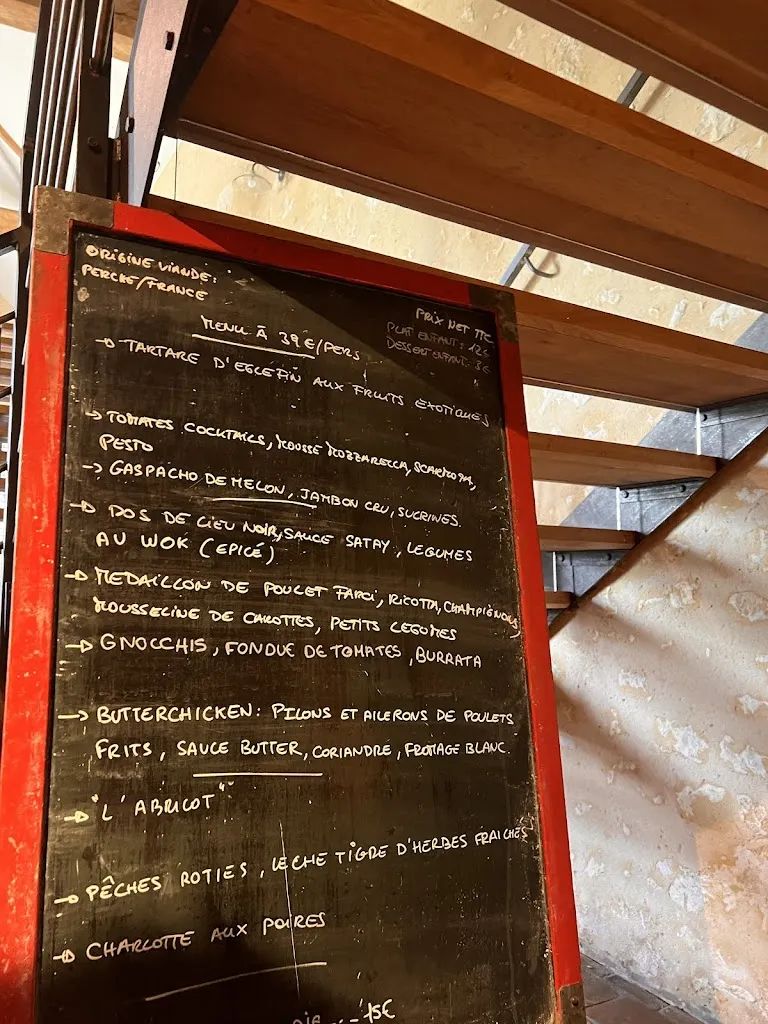 ORIGINE VIANDE:
PERCHE/FRANCE
PRIX NET TTC
PLAT ENFANT: 12€
DESSERT ENFANT: 3€
MENU À 39€/PERS
→ TARTARE D'EGLEFIN AUX FRUITS EXOTIQUES
→ TOMATES COCKTAILS, MOUSSE MOZZARELLA,
PESTO
→ GASPACHO DE MELON, JAMBON CRU, SUCRINES.
→ DOS DE LIEU NOIR, SAUCE SATAY, LEGUMES
AU WOK (EPICÉ)
→ MEDAILLON DE POULET FARCI, RICOTTA, CHAMPIGNONS,
MOUSSELINE DE CAROTTES, PETITS LEGUMES
→ GNOCCHIS, FONDUE DE TOMATES, BURRATA
→ BUTTERCHICKEN: PILONS ET AILERONS DE POULETS
FRITS, SAUCE BUTTER, CORIANDRE, FROMAGE BLANC.
→ "L'ABRICOT"
→ PÊCHES ROTIES, LECHE TIGRE D'HERBES FRAICHES
→ CHARLOTTE AUX POIRES
15€